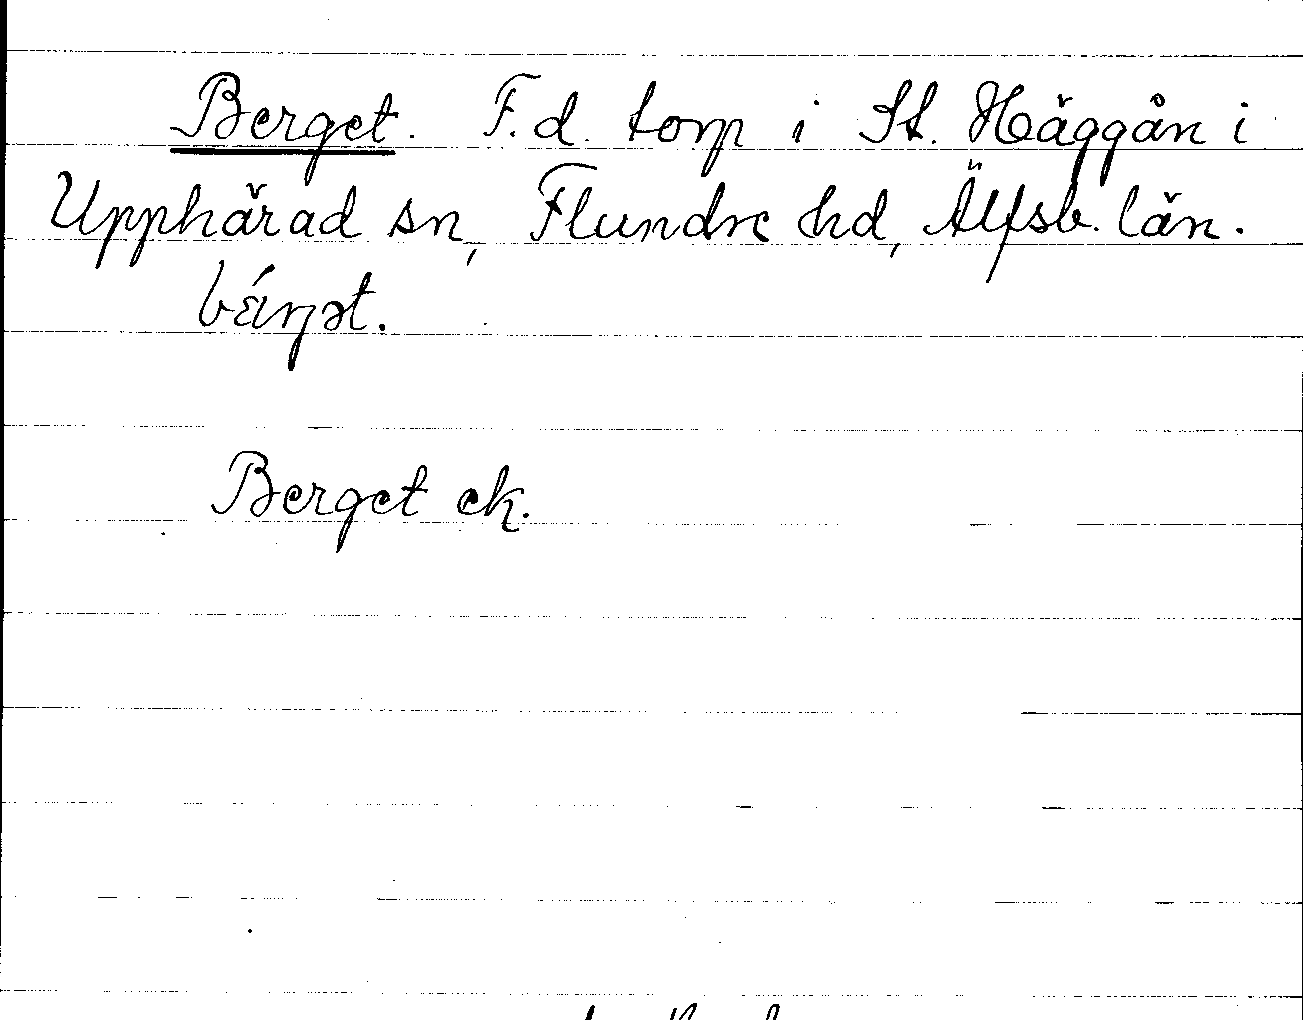 Berget. F.d. torp i St. Häggån i
Upphärad sn, Flundre hd, Älfsb. län.
Berget ek.